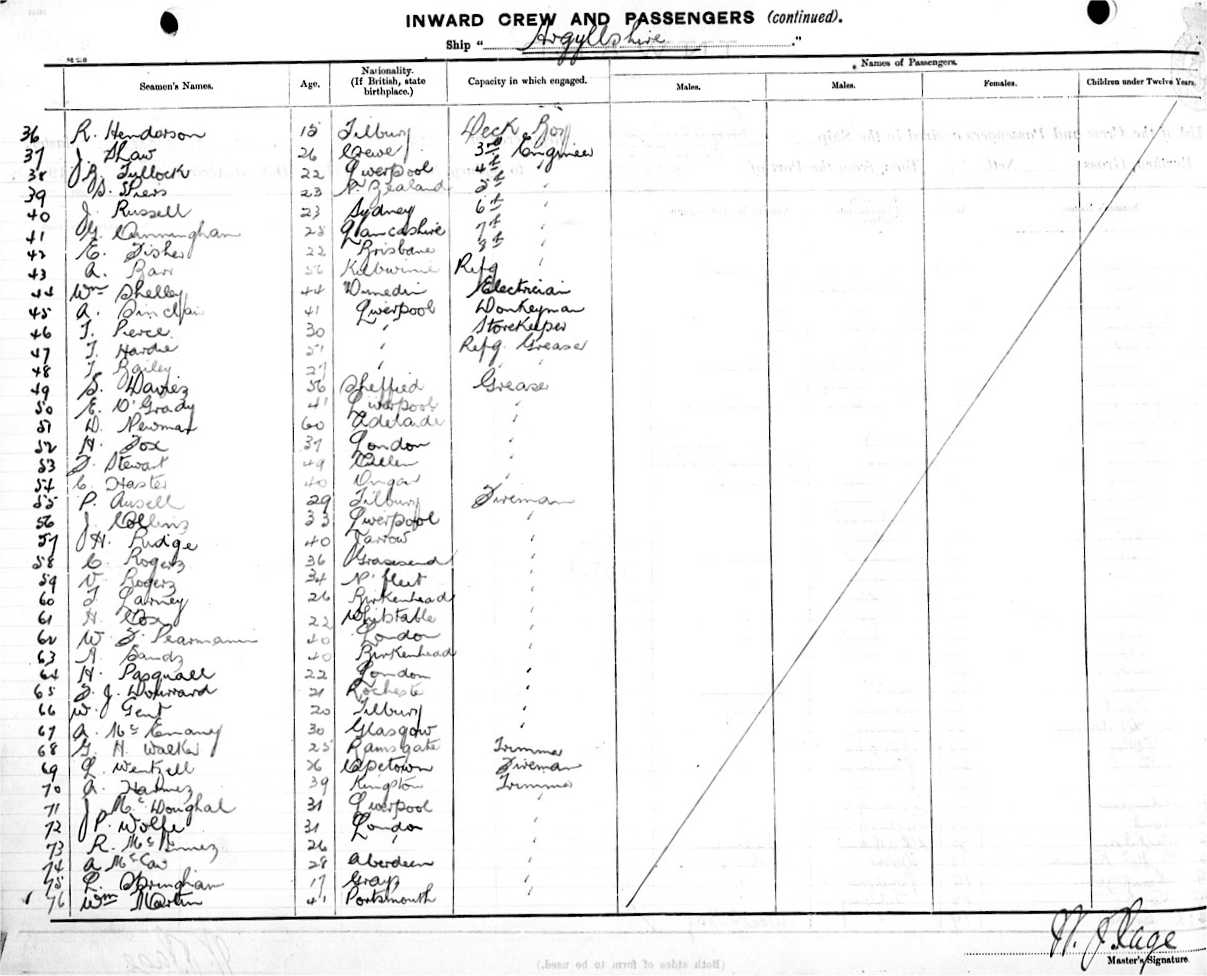 INWARD CREW AND PASSENGERS (continued).
Ship "Argyllshire"
Names of Passengers.
Seamen's Names. Age. Nationality. (If British, state birthplace.) Capacity in which engaged. Males. Males. Females. Children under Twelve Years.
36 R. Henderson 15 Tilbury Deck Boy
37 J. Shaw 26 Crewe 3rd Engineer
38 G. Tullock 22 Liverpool 4th "
39 S. Spiers 23 N. Zealand 5th "
40 J. Russell 23 Sydney 6th "
41 G. Cunningham 28 Lancashire 7th "
42 E. Fisher 22 Brisbane 8th "
43 A. Barr 56 Kilwinnie Refg "
44 Wm Shelley 44 Dunedin Electrician
45 A. Sinclair 41 Liverpool Donkeyman
46 T. Pierce 30 " Storekeeper
47 T. Hardie 51 " Refg Greaser
48 T. Bailey 27 " " "
49 S. Davies 56 Sheffield Greaser
50 E. O'Grady 41 Liverpool "
51 D. Newman 60 Adelaide "
52 H. Fox 37 London "
53 F. Stewart 49 Cullen "
54 C. Haster 40 Ongar "
55 P. Ausell 29 Tilbury Fireman
56 J. Collins 33 Liverpool "
57 H. Rudge 40 Jarrow "
58 C. Rogers 36 Gravesend "
59 V. Rogers 34 N. fleet "
60 T. Larney 26 Birkenhead "
61 H. Cox 22 Whitstable "
62 W. F. Pearmann 40 London "
63 A. Sands 40 Birkenhead "
64 H. Pasquall 22 London "
65 F. J. 21 Rochester "
66 W. Gent 20 Tilbury "
67 A. McEnaney 30 Glasgow "
68 G. H. Walker 25 Ramsgate Trimmer
69 L. Wentzell 26 Capetown Fireman
70 A. Harmes 39 Kingston Trimmer
71 J. McDoughal 31 Liverpool "
72 P. Wolfe 31 London "
73 R. 26 " "
74 A. McCaw 28 Aberdeen "
75 L. Springham 17 Grays "
76 Wm Martin 41 Portsmouth "
W. J. Page
Master's Signature
(Both sides of form to be used.)